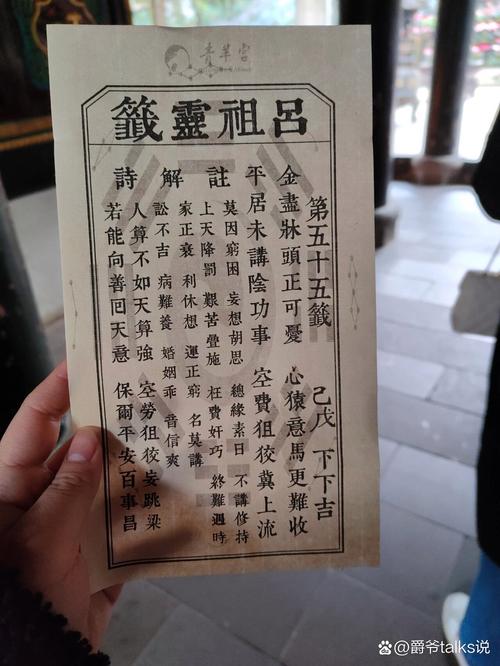 青羊宮
呂祖靈籤
第五十五籤 己戊 下下吉
金盡牀頭正可憂 心猿意馬更難收
平居未講陰功事 空費狙狡冀上流
註解詩
莫因窮困 妄想胡思 總緣素日 不講修持
上天降罰 艱苦疊施 枉費奸巧 終難遇時
家正衰 利休想 運正窮 名莫講
訟不吉 病難養 婚姻乖 音信爽
人算不如天算強 空勞狙狡妄跳梁
若能向善回天意 保爾平安百事昌
@爵爷talks说